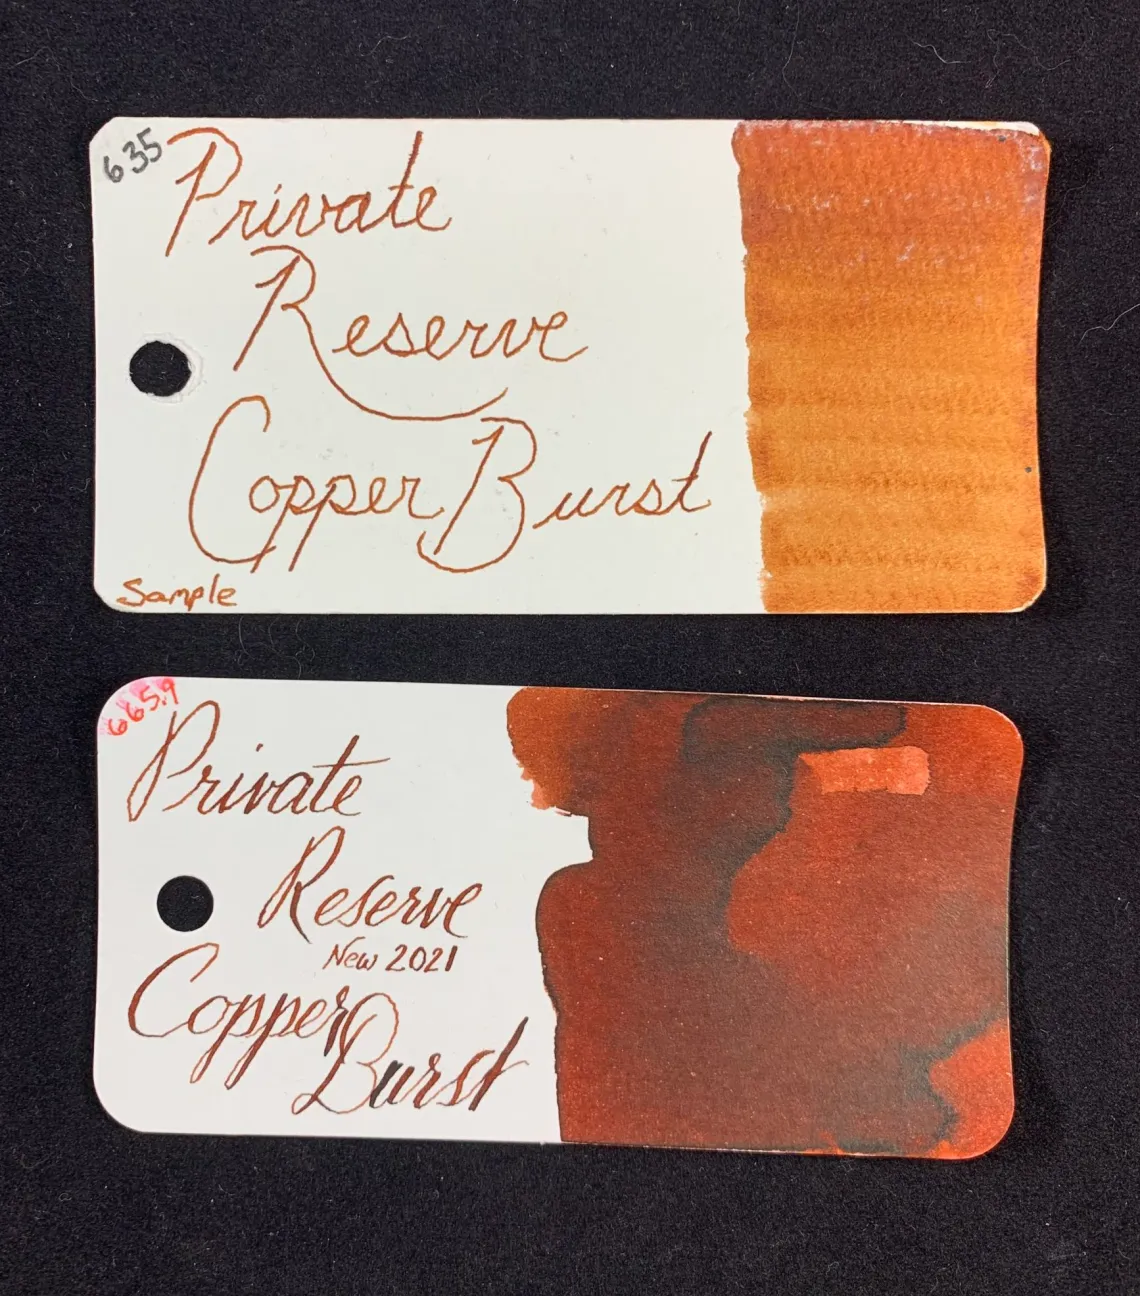 635
Private
Reserve
Copper Burst
Sample
665.9
Private
Reserve
New 2021
Copper
Burst